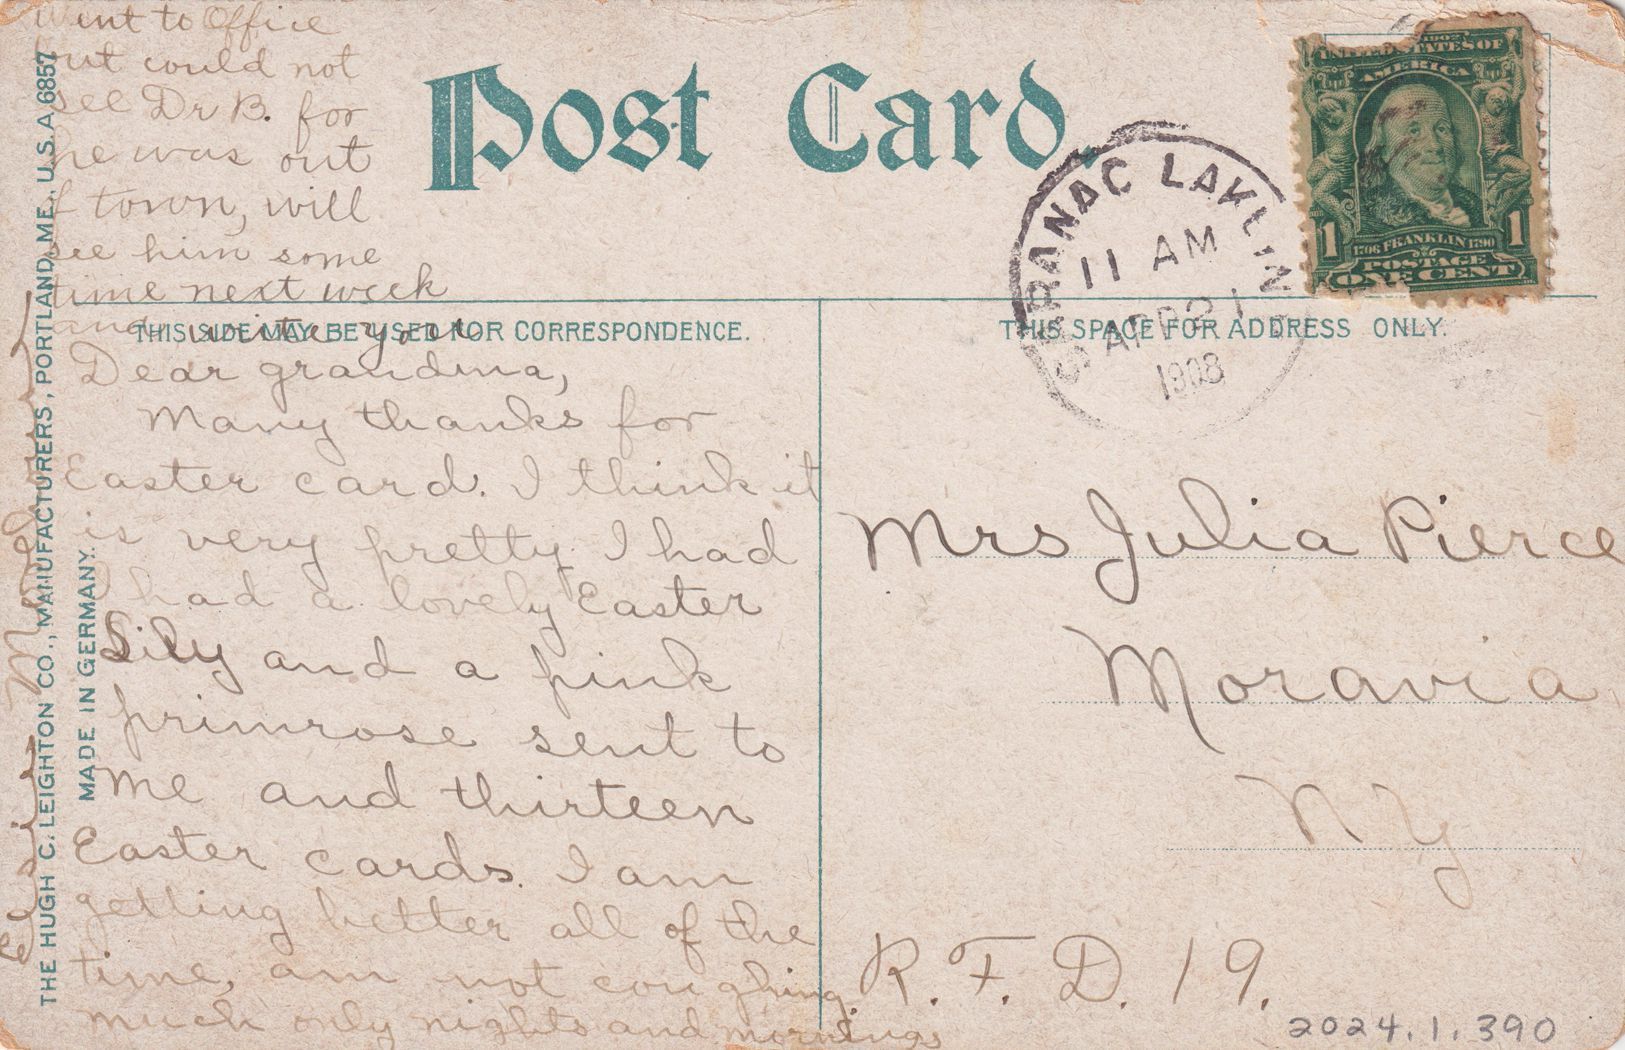 Went to Office
but could not
see Dr B. for
he was out
of town, will
see him some
time next week
and write you
Post Card.
THIS SIDE MAY BE USED FOR CORRESPONDENCE.
Dear grandma,
Many thanks for
Easter card. I think it
is very pretty I had
had a lovely Easter
Lily and a pink
primrose sent to
me and thirteen
Easter cards. I am
getting better all of the
time, am not coughing
much only nights and mornings
Elsie
THE HUGH C. LEIGHTON CO., MANUFACTURERS, PORTLAND, ME., U.S.A. 6857
MADE IN GERMANY.
SARANAC LAKE
11 AM
APR 21
1908
SERIES 1902
UNITED STATES OF
AMERICA
1 1
1706 FRANKLIN 1790
POSTAGE
ONE CENT
THIS SPACE FOR ADDRESS ONLY.
Mrs Julia Pierce
Moravia
NY
R. F. D. 19.
2024.1.390